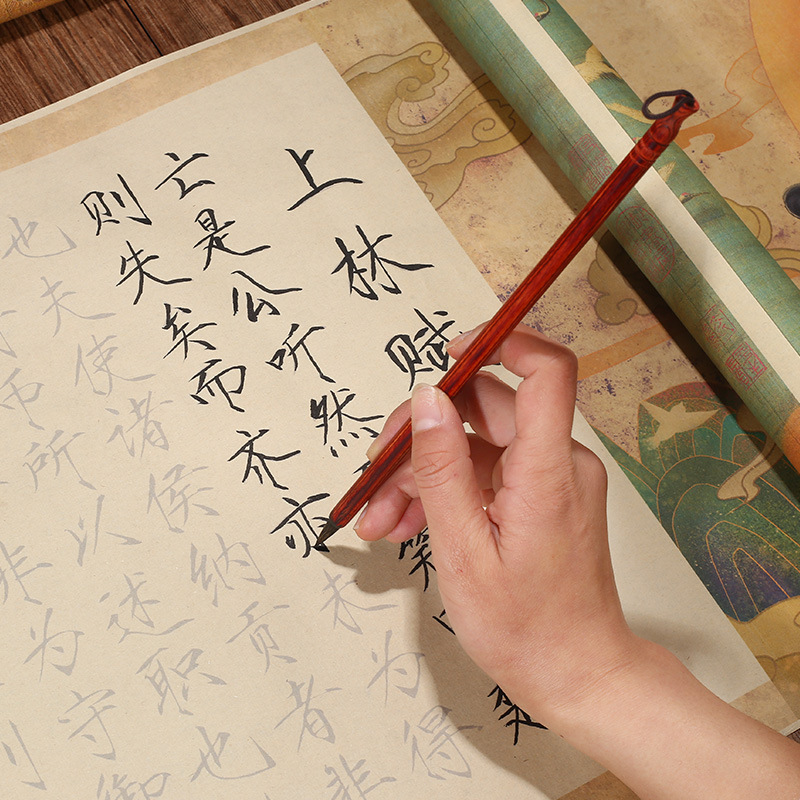 上林赋
亡是公听然笑
则失矣而齐亦未为得
也夫使诸侯纳贡者非
币所以述职也
非为守御